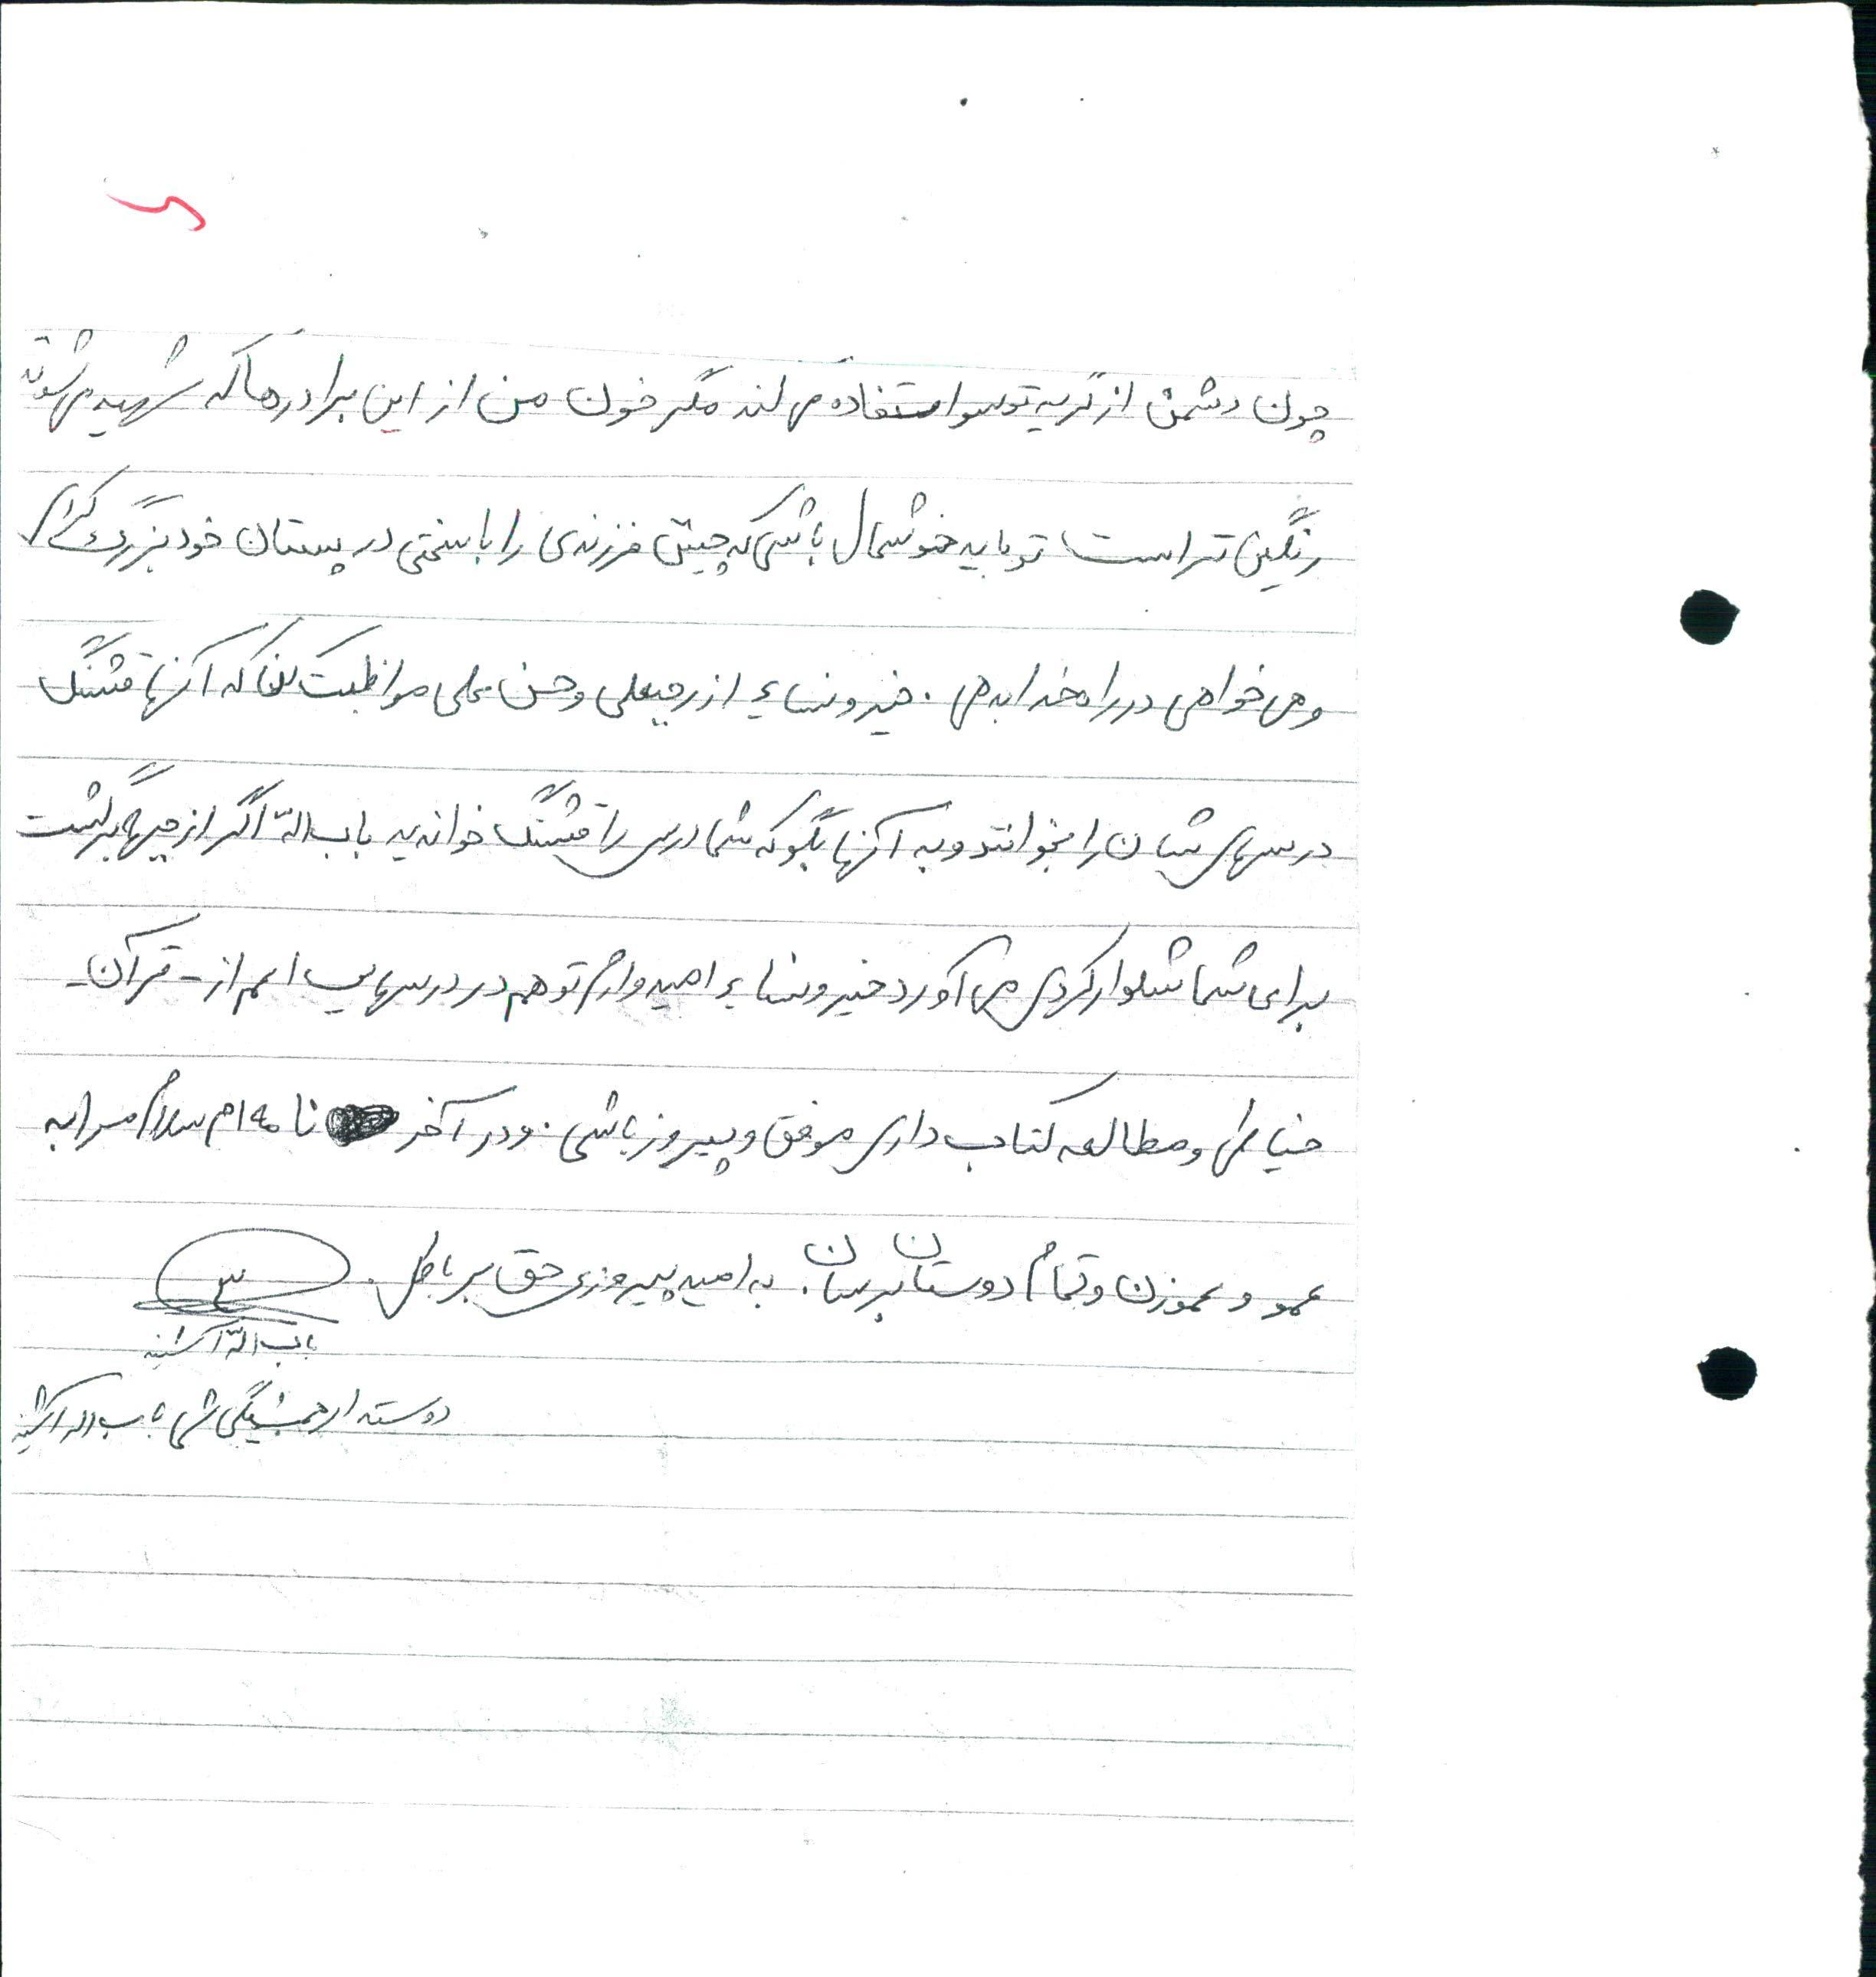 چون دشمن از گریه تو سوا استفاده می کند مگر خون من از این برادرها که شهید میشوند
رنگین تر است تو باید خوشحال باشی که چنین فرزندی را با سختی در پستان خود بزرگ کرد
و می خواهی در راه خدا بدهی . خیرونساء از رجبعلی و حسن علی مواظبت کن که آنها قشنگ
درسهای شان را بخوانند و به آنها بگو که شما درس را قشنگ خوانید باب الله اگر از جبهه برگشت
برای شما شلوار کردی می آورد خیرونساء امیدوارم تو هم در درسهایت اعم از - قرآن -
خیاطی و مطالعه کتاب داری موفق و پیروز باشی . و در آخر نامه ام سلام مرا به
عمو و عموزن و تمام دوستان برسان . به امید پیروزی حق بر باطل .
باب الله
دوستدار همیشگی شما باب الله